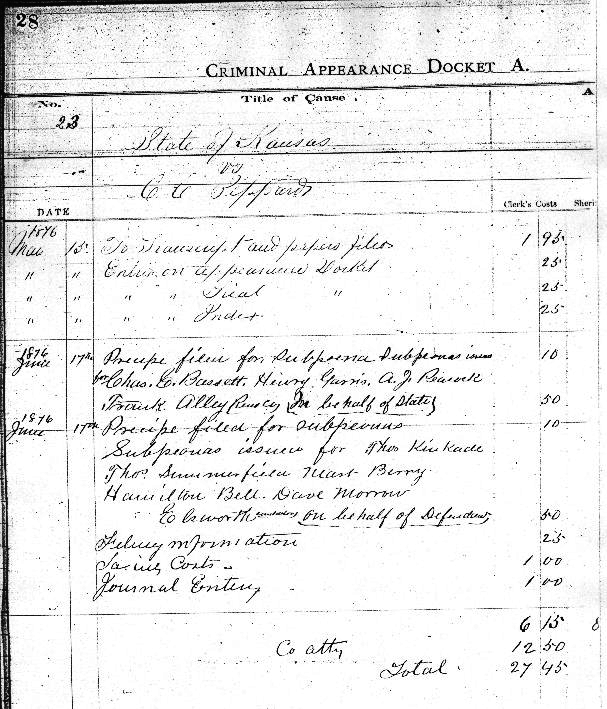 28
CRIMINAL APPEARANCE DOCKET A.
No. Title of Cause. A
23 State of Kansas
vs
C C Peppard
DATE Clerk's Costs Sheri
1876
15 To Transcript and papers filed 1 95
" " Entry on appearance Docket 25
" " " " Trial " 25
" " " " Index 25
1876
June 17th Precipe filed for subpoena Subpeonas issued 10
for Chas. E. Bassett, Henry A. J. Peacock
Frank Alley (In behalf of State) 50
1876
June 17th Precipe filed for subpeonas 10
Subpeonas issued for Thos Kinkade
Thos Summerfield Mart Berry
Hamilton Bell Dave Morrow
Elsworth on behalf of Defendant 50
Filing information 25
Taxing Costs 1 00
Journal Entry 1 00
6 15 8
Co atty 12 50
Total 27 45